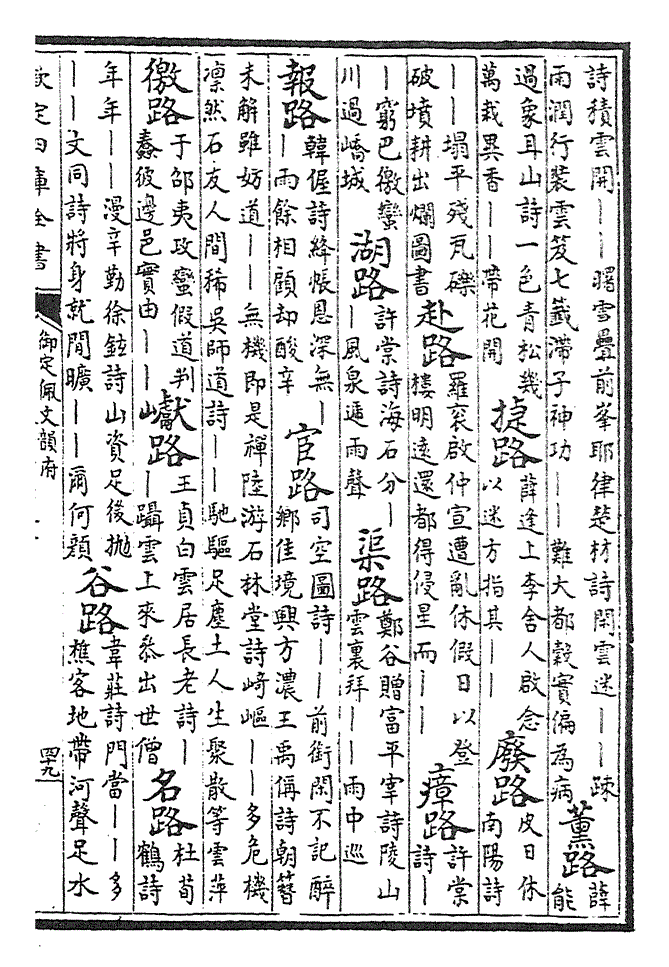 詩積雲開——曙雪疊前峯耶律楚材詩閑雲迷——疎
雨潤行裝雲笈七籤滯子神功——難大都穀實偏為病
薰路
薛
能
過象耳山詩一色青松幾
萬栽異香——帶花開
捷路
薛逢上李舍人啟念
以迷方指其——
廢路
皮日休
南陽詩
——塌平殘瓦礫
破墳耕出爛圖書
赴路
羅衮啟仲宣遭亂休假日以登
樓明遠還都得侵星而——
瘴路
許棠
詩—
—窮巴徼蠻
川過嶠城
湖路
許棠詩海石分—
—風泉遞雨聲
渠路
鄭谷贈富平宰詩陵山
雲裏拜——雨中巡
報路
韓偓詩絳帳恩深無—
—雨餘相顧却酸辛
宦路
司空圖詩——前銜閑不記醉
鄉佳境興方濃王禹偁詩朝簪
未解雖妨道——無機即是禪陸游石林堂詩崎嶇——多危機
凛然石友人間稀吳師道詩——馳驅足塵土人生聚散等雲萍
徼路
于邵夷攻蠻假道判
蠢彼邊邑實由——
巘路
王貞白雲居長老詩—
—躡雲上來叅出世僧
名路
杜荀
鶴詩
年年——漫辛勤徐鉉詩山資足後抛
——文同詩將身就閒曠——爾何顔
谷路
韋莊詩門當——多
樵客地帶河聲足水
欽定四庫全書
御定佩文韻府
四十九